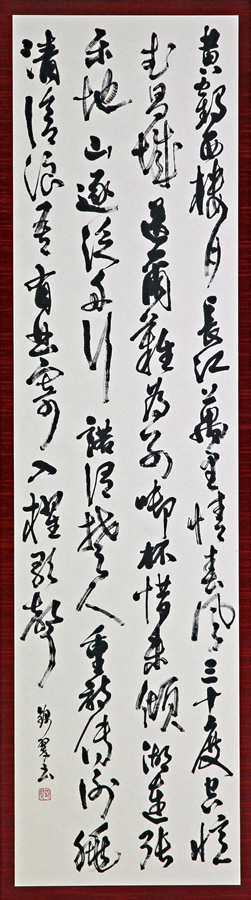 黄鶴西樓月長江萬里情春風三十度空憶
武昌城送爾難為别啣杯惜未傾湖連張
樂地山逐泛舟行諾謂楚人重詩傳謝朓
清滄浪吾有曲寄入櫂歌聲